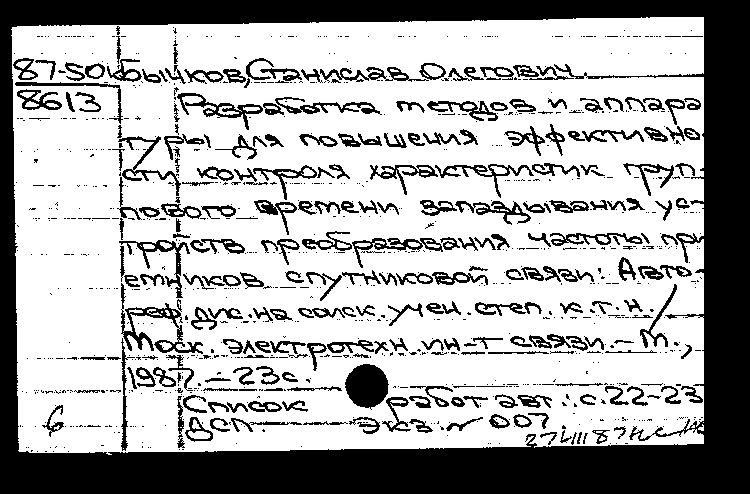 87-50к Бычков, Станислав Олегович.
8613 Разработка методов и аппара
туры для повышения эффективно
сти контроля характеристик груп-
пового времени запаздывания ус-
тройств преобразования частоты при
емников спутниковой связи: Авто-
реф. дис. на соиск. учен. степ. к. т. н. /
Моск. электротехн. ин-т связи. - М.,
1987. - 23 с.
Список работ авт.: с. 22-23
6 ДСП. Экз. № 007